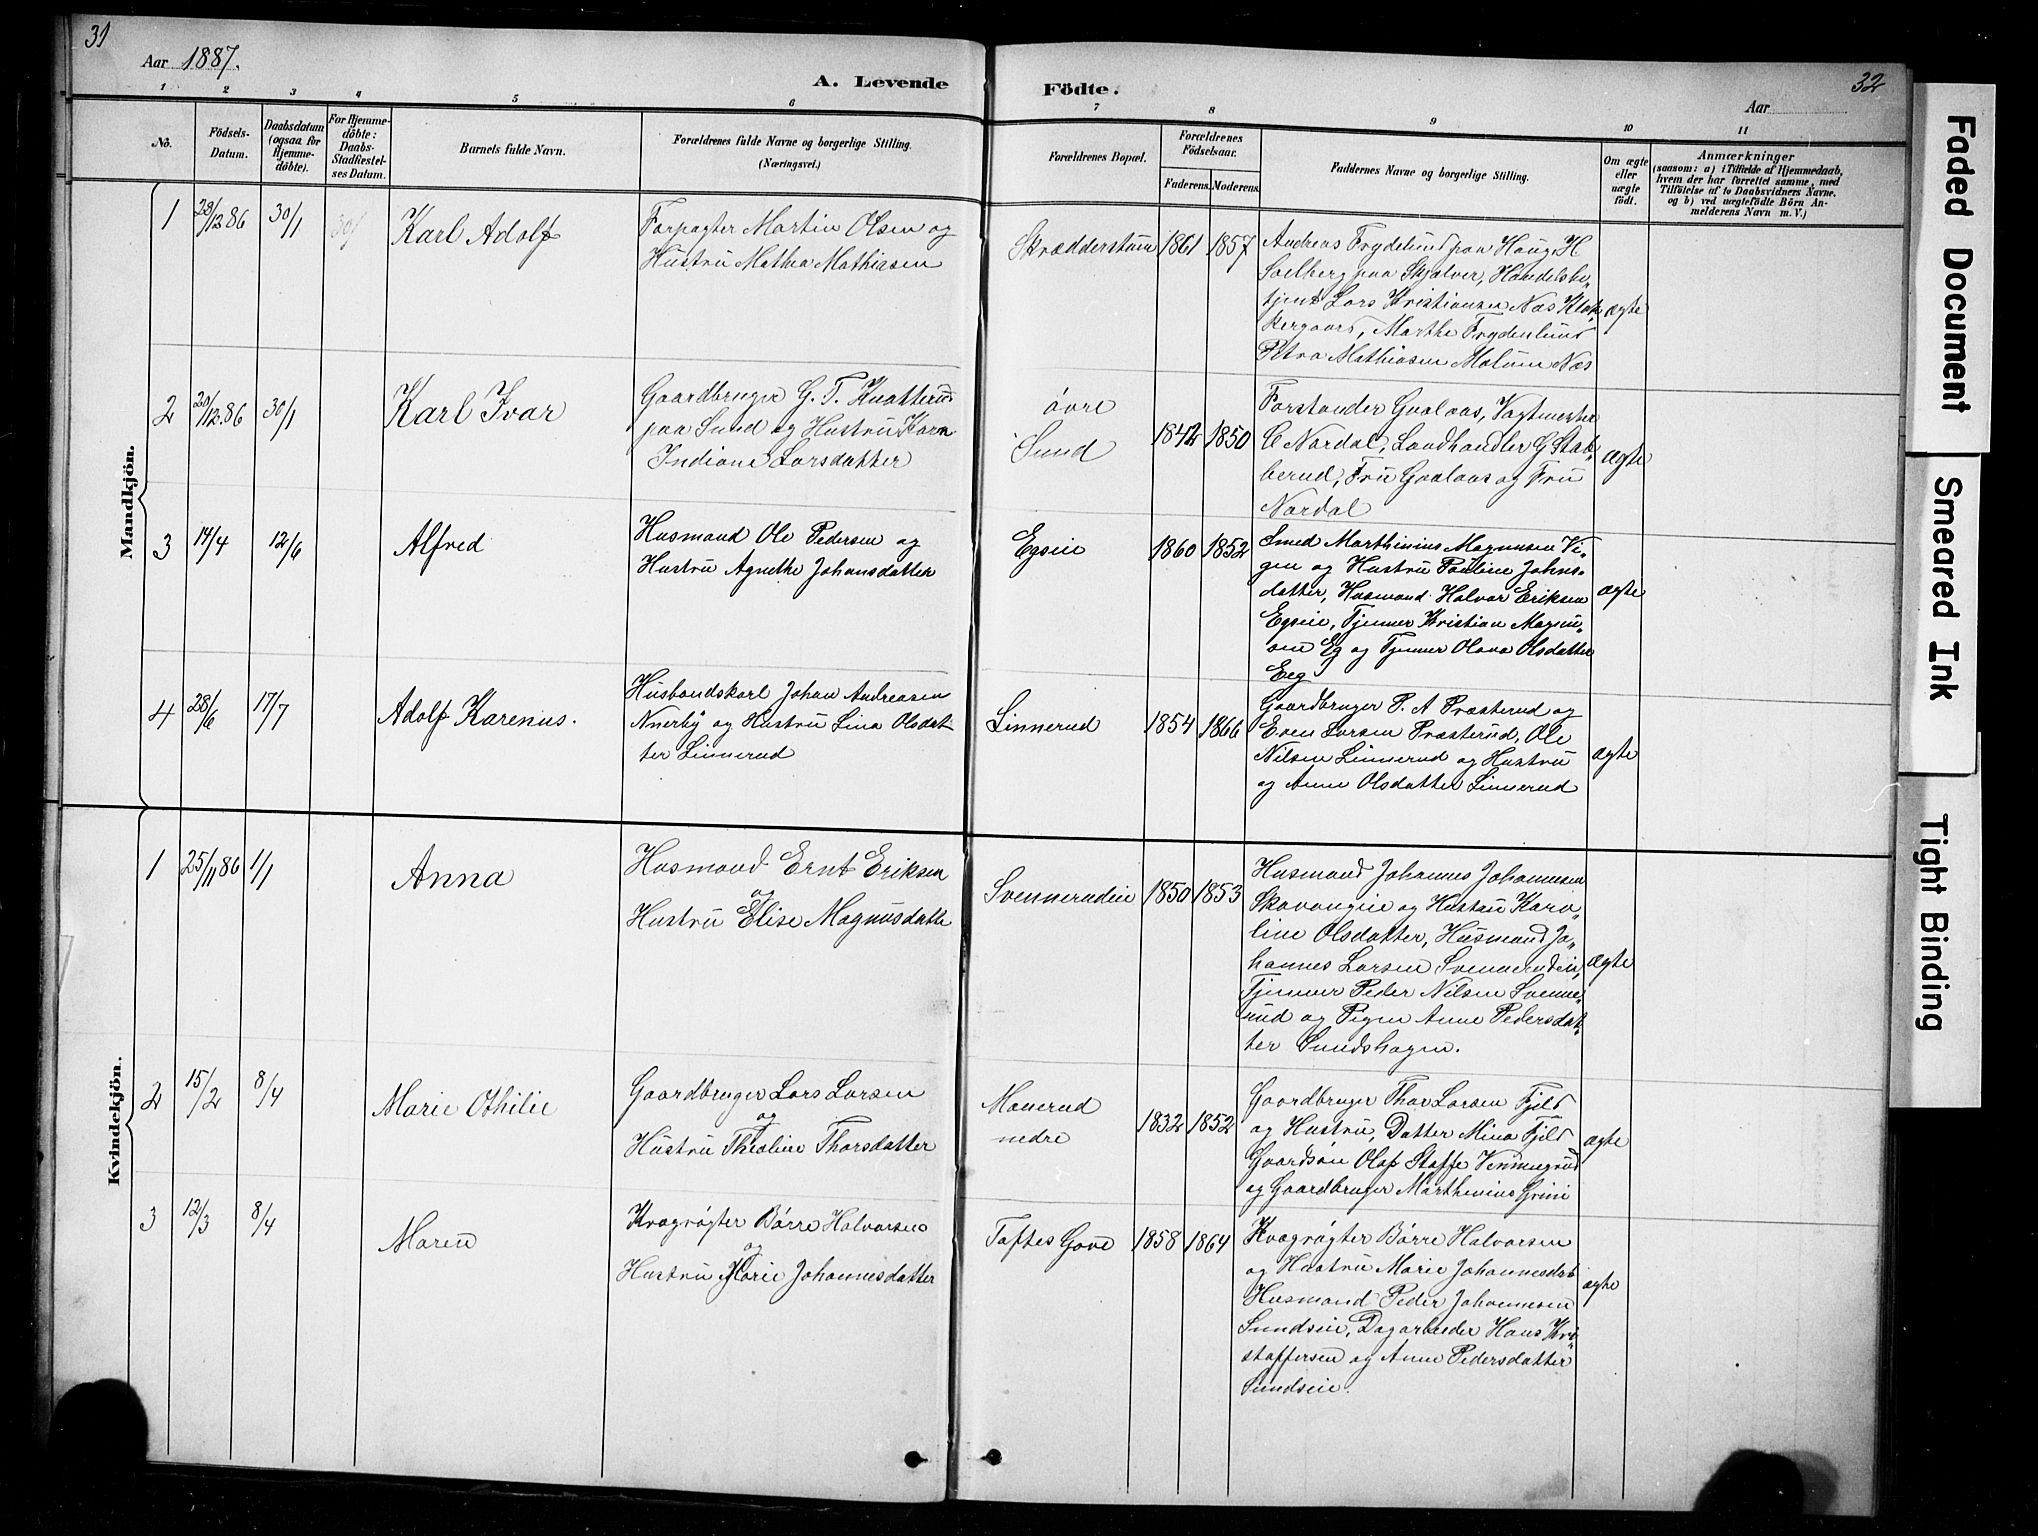 31
Aar 1887.
A. Levende
Födte.
Aar
32
1 2 3 4 5 6 7 8 9 10 11
No.
Födsels-
Datum.
Daabsdatum
(ogsaa for
Hjemme-
døbte).
For Hjemme-
døbte:
Daabs-
Stadfæstel-
ses Datum.
Barnets fulde Navn.
Forældrenes fulde Navne og borgerlige Stilling.
(Næringsvei.)
Forældrenes Bopæl.
Forældrenes
Födselsaar.
Faderens. Moderens.
Faddernes Navne og borgerlige Stilling.
Om ægte
eller
uægte
født.
Anmærkninger
(saasom: a) i Tilfælde af Hjemmedaab,
hvem der har forrettet samme, med
Tilföielse af to Daabsvidners Navne.
og b) ved uægtefödte Börn An-
melderens Navn m. V.)
Mandkjön.
1 28/12 86 30/1 30/1
Karl Adolf
Forpagter Martin Olsen og
Hustru Mathea Mathiasen
Skrædderstuen 1861 1857
Andreas Frydelund paa Haug, H
Solberg paa Skjalver, Handelsbe-
tjent Lars Kristiansen Næs Klok-
kergaard, Marthe Frydenlund
Petra Mathiasen Molum Næs
ægte
2 20/12.86 30/1
Karl Ivar
Gaardbruger G. T. Knatterud
paa Sund og Hustru Karn
Indiane Larsdatter
övre
Sund
1842 1850
Forstander Gaalaas, Vagtmester
C Nordal, Landhandler G Stab-
berud, Fru Gaalaas og Fru
Nordal
ægte
3 14/4 12/6
Alfred
Husmand Ole Pedersen og
Hustru Agnethe Johansdatter
Egseie 1860 1852
Smed Marthinius Magnusen Vi-
gen og Hustru Pauline Johns-
datter, Husmand Halvor Eriksen
Egseie, Tjener Kristian Magnu-
sen Eg og Tjener Olava Olsdatter
Eeg
ægte
4 28/6 17/7
Adolf Karenius.
Husbondskarl Johan Andreasen
Nnerby og Hustru Lina Olsdat
ter Linnerud
Linnerud 1854 1866
Gaardbruger P. A Præsterud og
Even Larsen Præsterud, Ole
Nilsen Linnerud og Hustru
og Anne Olsdatter Linnerud
ægte
Kvindekjön.
1 25/11 86 1/1
Anna
Husmand Ernt Eriksen
og
Hustru Elise Magnusdatte
Svennerudeie 1850 1853
Husmand Johannes Johannesen
Skavangeie og Hustru Karo-
line Olsdatter, Husmand Jo-
hannes Larsen Svennerudeie,
Tjener Peder Nilsen Svenne-
rud og Pigen Anne Pedersdat-
ter Sundshagen.
ægte
2 15/2 8/4
Marie Othilie
Gaardbruger Lars Larsen
og
Hustru Theoline Thorsdatter
Manerud
nedre
1832 1852
Gaardbruger Thor Larsen Fjeld
og Hustru, Datter Mina Fjeld
Gaardsøn Olaf Staffe Vennugrud
og Gaardbruger Marthinius Grini
ægte
3 12/3 8/4
Maren
Kvægrögter Börre Halvorsen
og
Hustru Marie Johannesdatter
Toftes Gave 1858 1864
Kvægrögter Börre Halvorsen
og Hustru Marie Johannesdat
Husmand Peder Johannesen
Sundseie, Dagarbeider Hans Kri-
stoffersen og Anne Pedersdatter
Sundseie.
ægte
Faded Document
Smeared Ink
Tight Binding